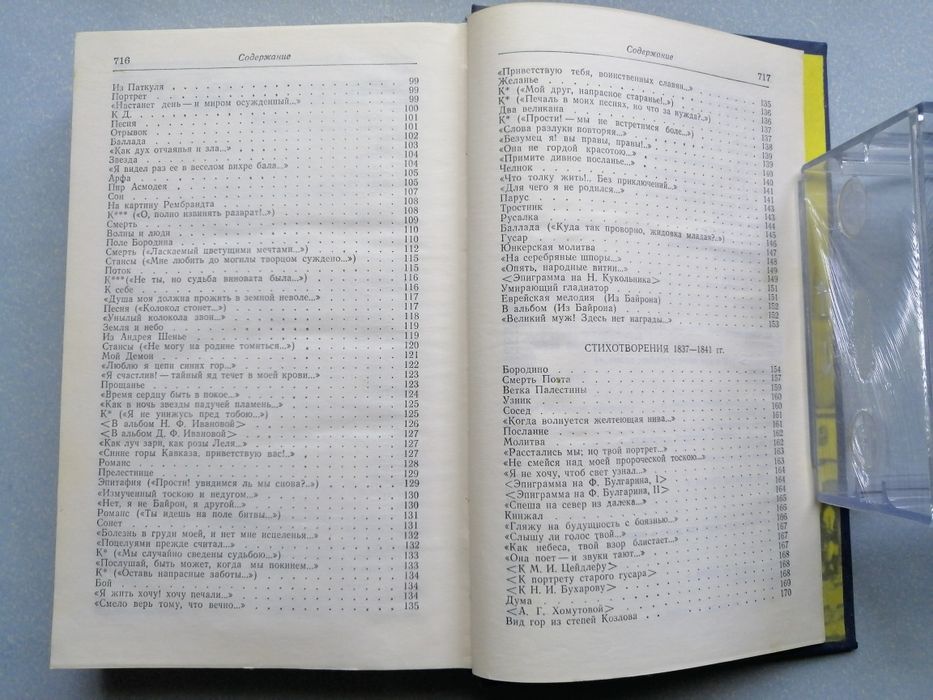 716 Содержание
Из Паткуля 99
Портрет 99
«Настанет день — и миром осужденный...» 99
К Д. 100
Песня 101
Отрывок 101
Баллада 102
«Как дух отчаянья и зла...» 103
Звезда 104
«Я видел раз ее в веселом вихре бала...» 104
Арфа 105
Пир Асмодея 105
Сон 107
На картину Рембрандта 108
К*** («О, полно извинять разврат!..») 108
Смерть 109
Волны и люди 110
Поле Бородина 110
Смерть («Ласкаемый цветущими мечтами...») 112
Стансы («Мне любить до могилы творцом суждено...») 115
Поток 115
К***(«Не ты, но судьба виновата была...») 116
К себе 116
«Душа моя должна прожить в земной неволе...» 117
Песня («Колокол стонет...») 117
«Унылый колокола звон...» 118
Земля и небо 119
Из Андрея Шенье 119
Стансы («Не могу на родине томиться...») 120
Мой Демон 121
«Люблю я цепи синих гор...» 122
«Я счастлив! — тайный яд течет в моей крови...» 123
Прощанье 123
«Время сердцу быть в покое...» 124
«Как в ночь звезды падучей пламень...» 125
К* («Я не унижусь пред тобою...») 125
<В альбом Н. Ф. Ивановой> 126
<В альбом Д. Ф. Ивановой> 127
«Как луч зари, как розы Леля...» 127
«Синие горы Кавказа, приветствую вас!..» 127
Романс 128
Прелестнице 129
Эпитафия («Прости! увидимся ль мы снова?..») 129
«Измученный тоскою и недугом...» 130
«Нет, я не Байрон, я другой...» 130
Романс («Ты идешь на поле битвы...») 131
Сонет 131
«Болезнь в груди моей, и нет мне исцеленья...» 132
«Поцелуями прежде считал...» 132
К* («Мы случайно сведены судьбою...») 133
«Послушай, быть может, когда мы покинем...» 133
К* («Оставь напрасные заботы...») 134
Бой 134
«Я жить хочу! хочу печали...» 134
«Смело верь тому, что вечно...» 135
Содержание 717
«Приветствую тебя, воинственных славян...»
Желанье 135
К* («Мой друг, напрасное старанье!..») 136
К* («Печаль в моих песнях, но что за нужда?..») 136
Два великана 137
К* («Прости! — мы не встретимся боле...») 137
«Слова разлуки повторяя...» 138
«Безумец я! вы правы, правы!..» 139
«Она не гордой красотою...» 139
«Примите дивное посланье...» 140
Челнок 140
«Что толку жить!.. Без приключений...» 141
«Для чего я не родился...» 141
Парус 143
Тростник 143
Русалка 145
Баллада («Куда так проворно, жидовка младая?..») 146
Гусар 147
Юнкерская молитва 148
«На серебряные шпоры...» 149
«Опять, народные витии...» 149
<Эпиграмма на Н. Кукольника> 151
Умирающий гладиатор 151
Еврейская мелодия (Из Байрона) 152
В альбом (Из Байрона) 152
«Великий муж! Здесь нет награды...» 153
СТИХОТВОРЕНИЯ 1837—1841 гг.
Бородино 154
Смерть Поэта 157
Ветка Палестины 159
Узник 160
Сосед 160
«Когда волнуется желтеющая нива...» 161
Послание 161
Молитва 162
«Расстались мы; но твой портрет...» 162
«Не смейся над моей пророческой тоскою...» 163
«Я не хочу, чтоб свет узнал...» 163
<Эпиграмма на Ф. Булгарина, I> 164
<Эпиграмма на Ф. Булгарина, II> 164
«Спеша на север из далека...» 164
Кинжал 165
«Гляжу на будущность с боязнью...» 166
«Слышу ли голос твой...» 167
«Как небеса, твой взор блистает...» 167
«Она поет — и звуки тают...» 167
<К М. И. Цейдлеру> 168
<К портрету старого гусара> 168
<К Н. И. Бухарову> 168
Дума 169
<А. Г. Хомутовой> 170
Вид гор из степей Козлова